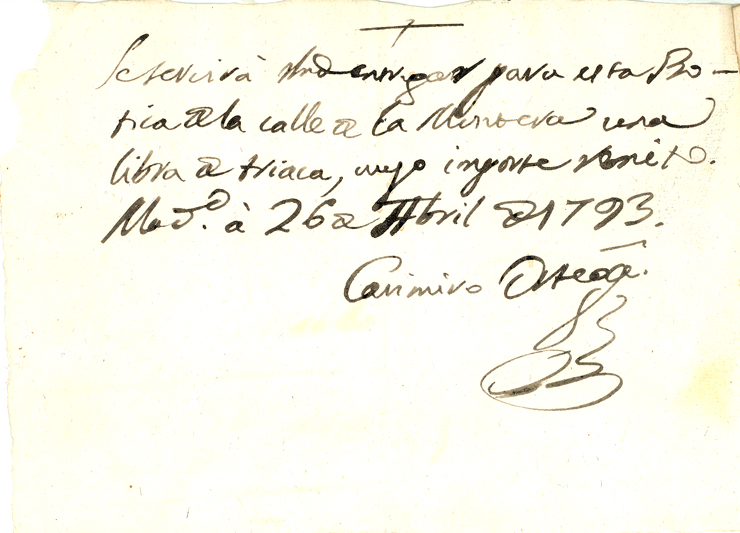 Se servirá Vmd entregar para esta Bo-
tica de la calle de la Minerva una
libra de triaca, cuyo importe remito.
Madd. à 26 de Abril de 1793.
Casimiro Ortega.